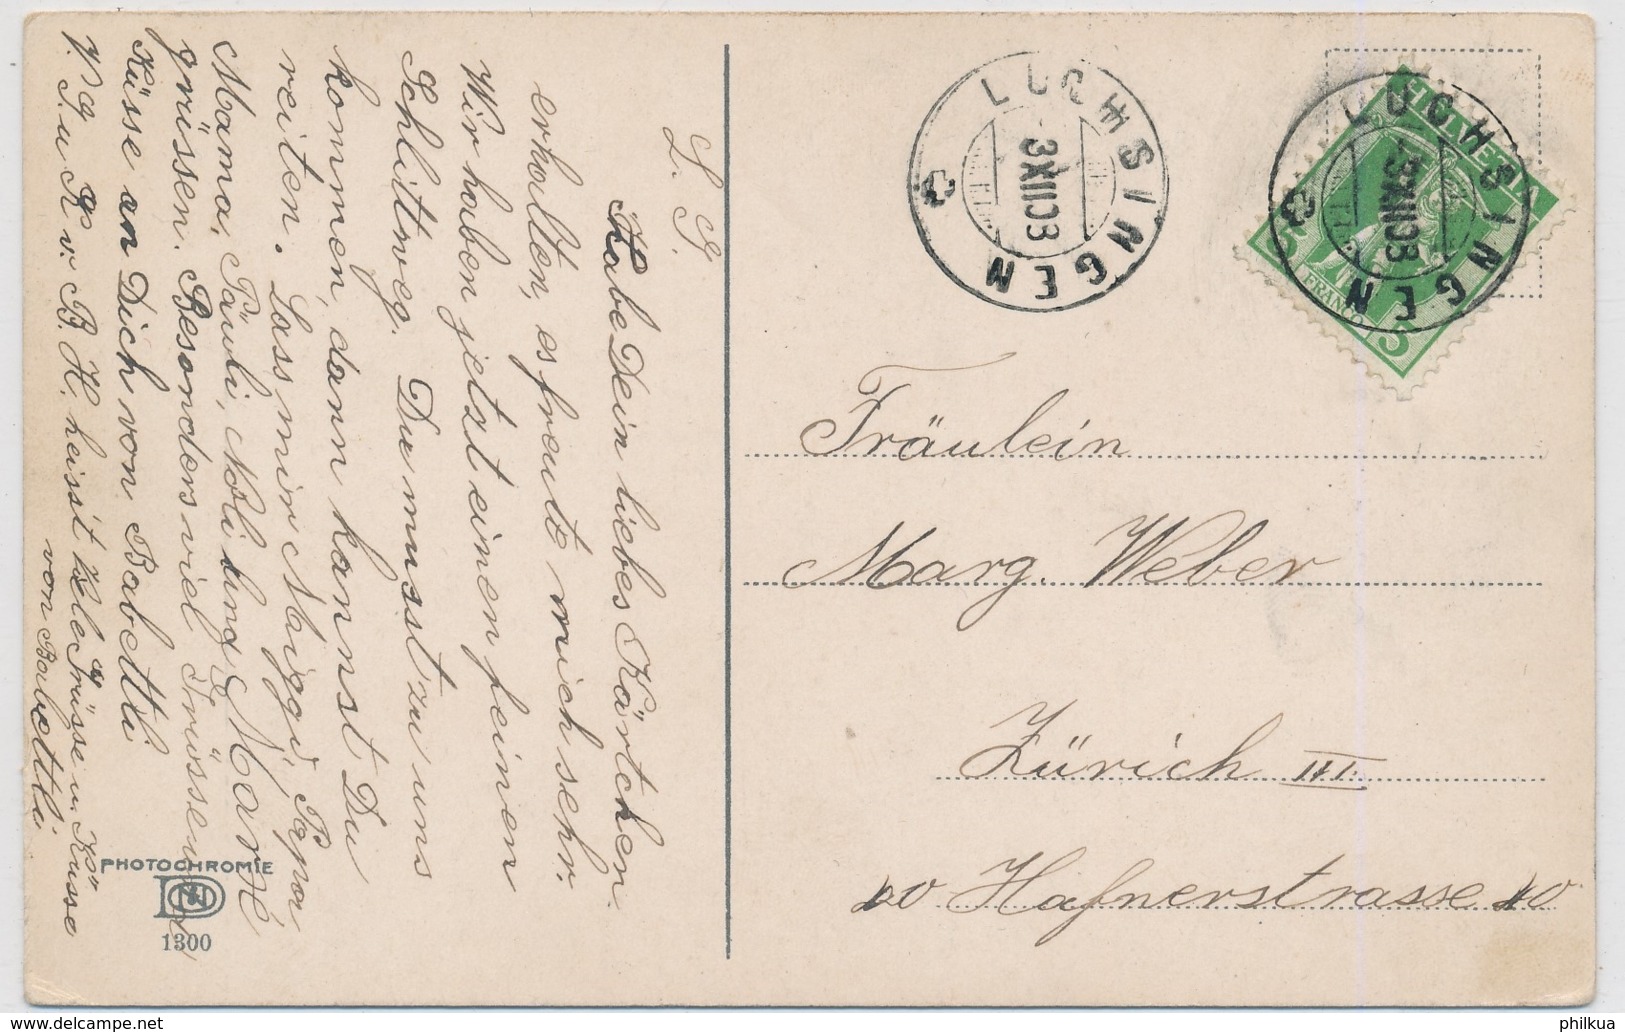 L. G.
Habe Dein liebes Kärtchen
erhalten, es freute mich sehr.
Wir haben jetzt einen feinen
Schlittweg. Du musst zu uns
kommen, dann kannst Du
reiten. Lass mir Maiggi, Papa
Mama, Päuli, Noldi und Marie
grüssen. Besonders viel Grüsse und
Küsse an Dich von Babettli
G. u. K. v. B. H. heisst viele Grüsse u. Küsse
von Babettli
PHOTOCHROMIE
1300
LUCHSINGEN
3XII08
LUCHSINGEN
-3XII08
HELVETIA
5
FRANCO
5
Fräulein
Marg. Weber
Zürich III.
Hafnerstrasse
philkua